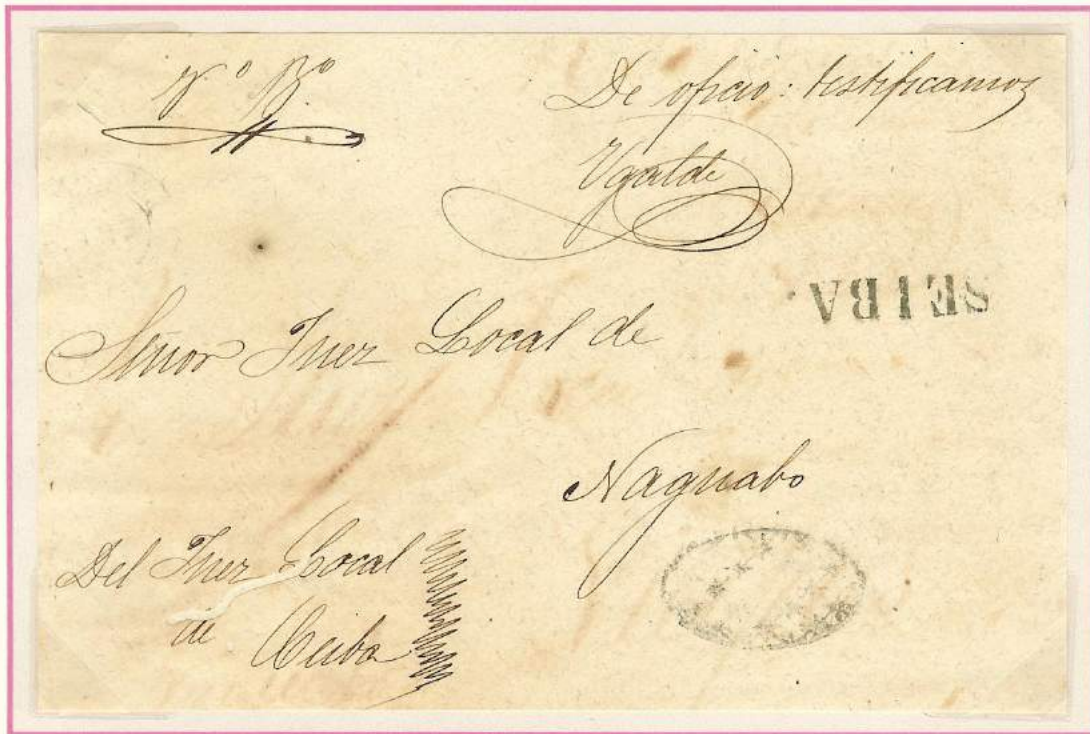 Vº Bº
De oficio: testificamos
Ugalde
SEIBA
Señor Juez Local de
Naguabo
Del Juez Local
de Ceiba